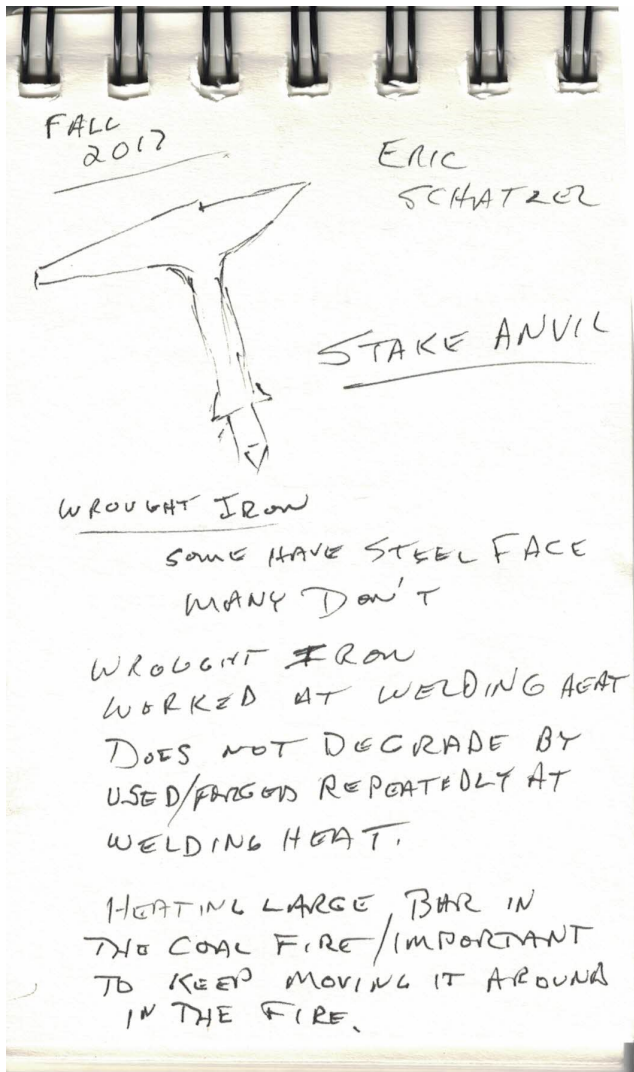 FALL
2017
ERIC
SCHATZER
STAKE ANVIL
WROUGHT IRON
SOME HAVE STEEL FACE
MANY DON'T
WROUGHT IRON
WORKED AT WELDING HEAT
DOES NOT DEGRADE BY
USED/FORGED REPEATEDLY AT
WELDING HEAT.
HEATING LARGE BAR IN
THE COAL FIRE/IMPORTANT
TO KEEP MOVING IT AROUND
IN THE FIRE.